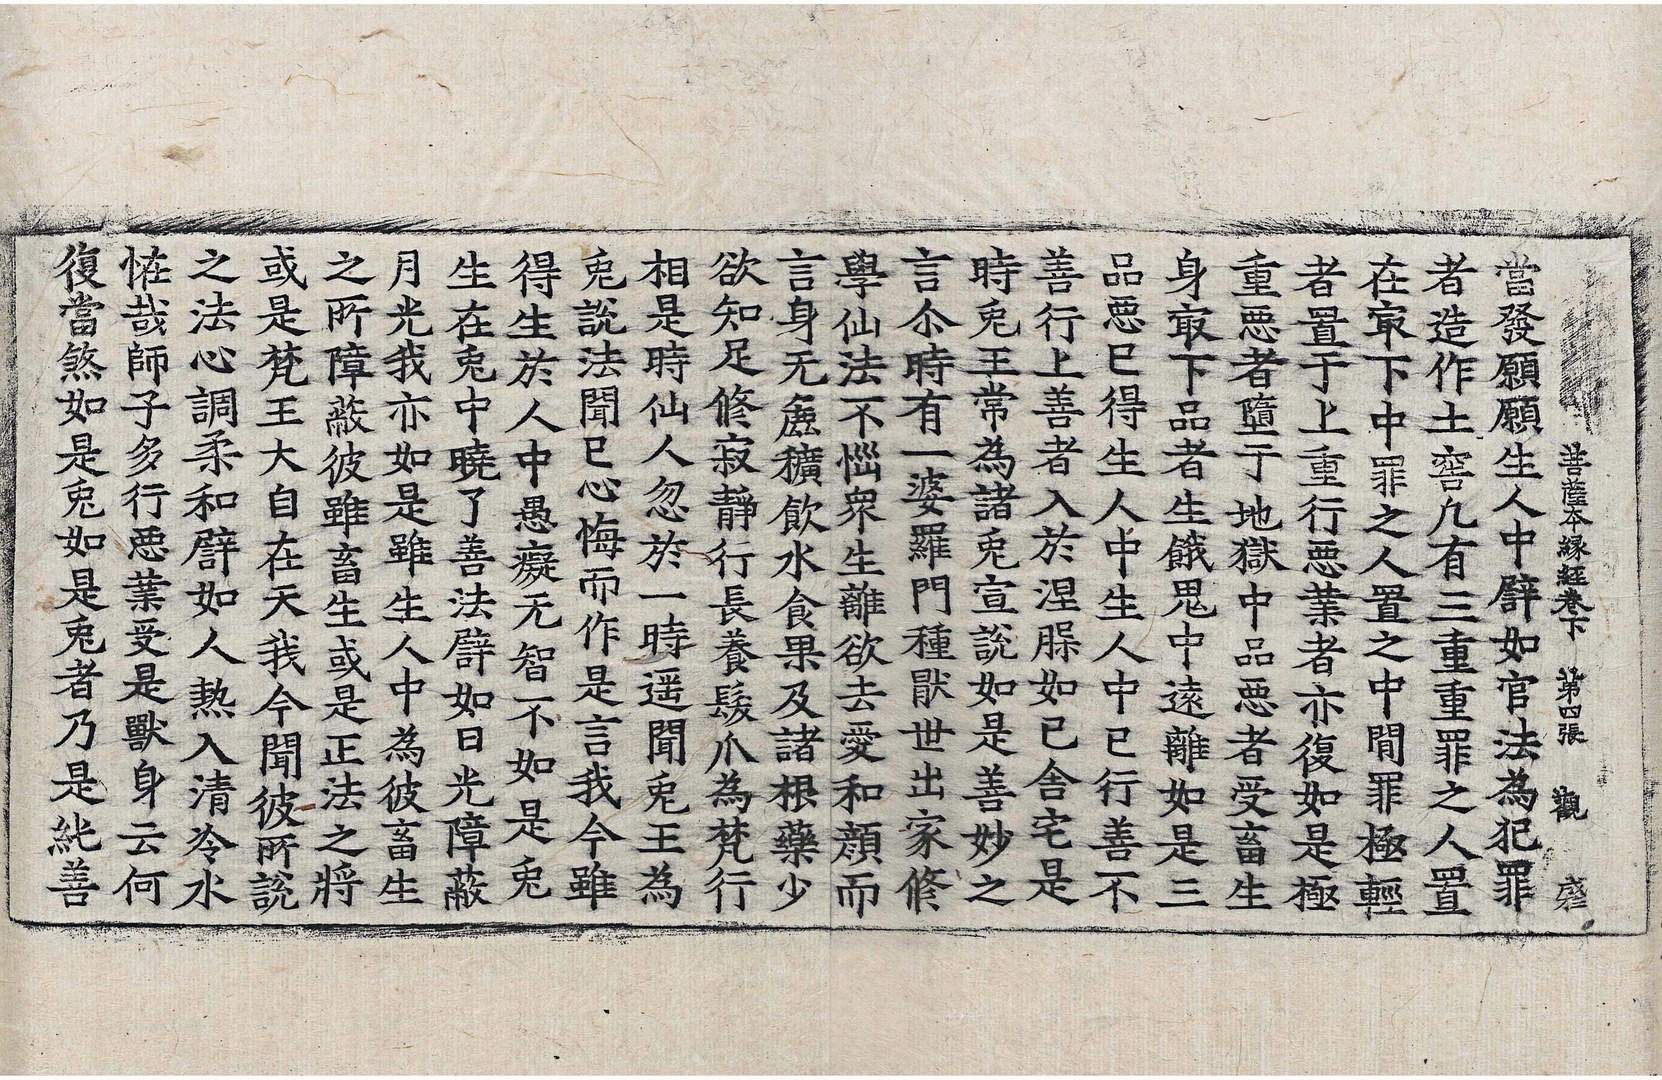 菩薩本縁經卷下　第四張　觀
當發願願生人中譬如官法為犯罪
者造作土窖凡有三重重罪之人置
在㝡下中罪之人置之中閒罪極輕
者置于上重行悪業者亦復如是極
重悪者墮于地獄中品悪者受畜生
身㝡下品者生餓鬼中遠離如是三
品悪已得生人中生人中已行善不
善行上善者入於涅槃如已舍宅是
時兎王常為諸兎宣說如是善妙之
言尒時有一婆羅門種猒世出家修
學仙法不惱衆生離欲去愛和顔而
言身无麁獷飲水食果及諸根藥少
欲知足修寂靜行長養髮爪為梵行
相是時仙人忽於一時遥聞兎王為
兎說法聞已心悔而作是言我今雖
得生於人中愚癡无智不如是兎
生在兎中曉了善法譬如日光障蔽
月光我亦如是雖生人中為彼畜生
之所障蔽彼雖畜生或是正法之將
或是梵王大自在天我今聞彼所說
之法心調柔和譬如人熱入清冷水
恠哉師子多行悪業受是獸身云何
復當煞如是兎如是兎者乃是純善